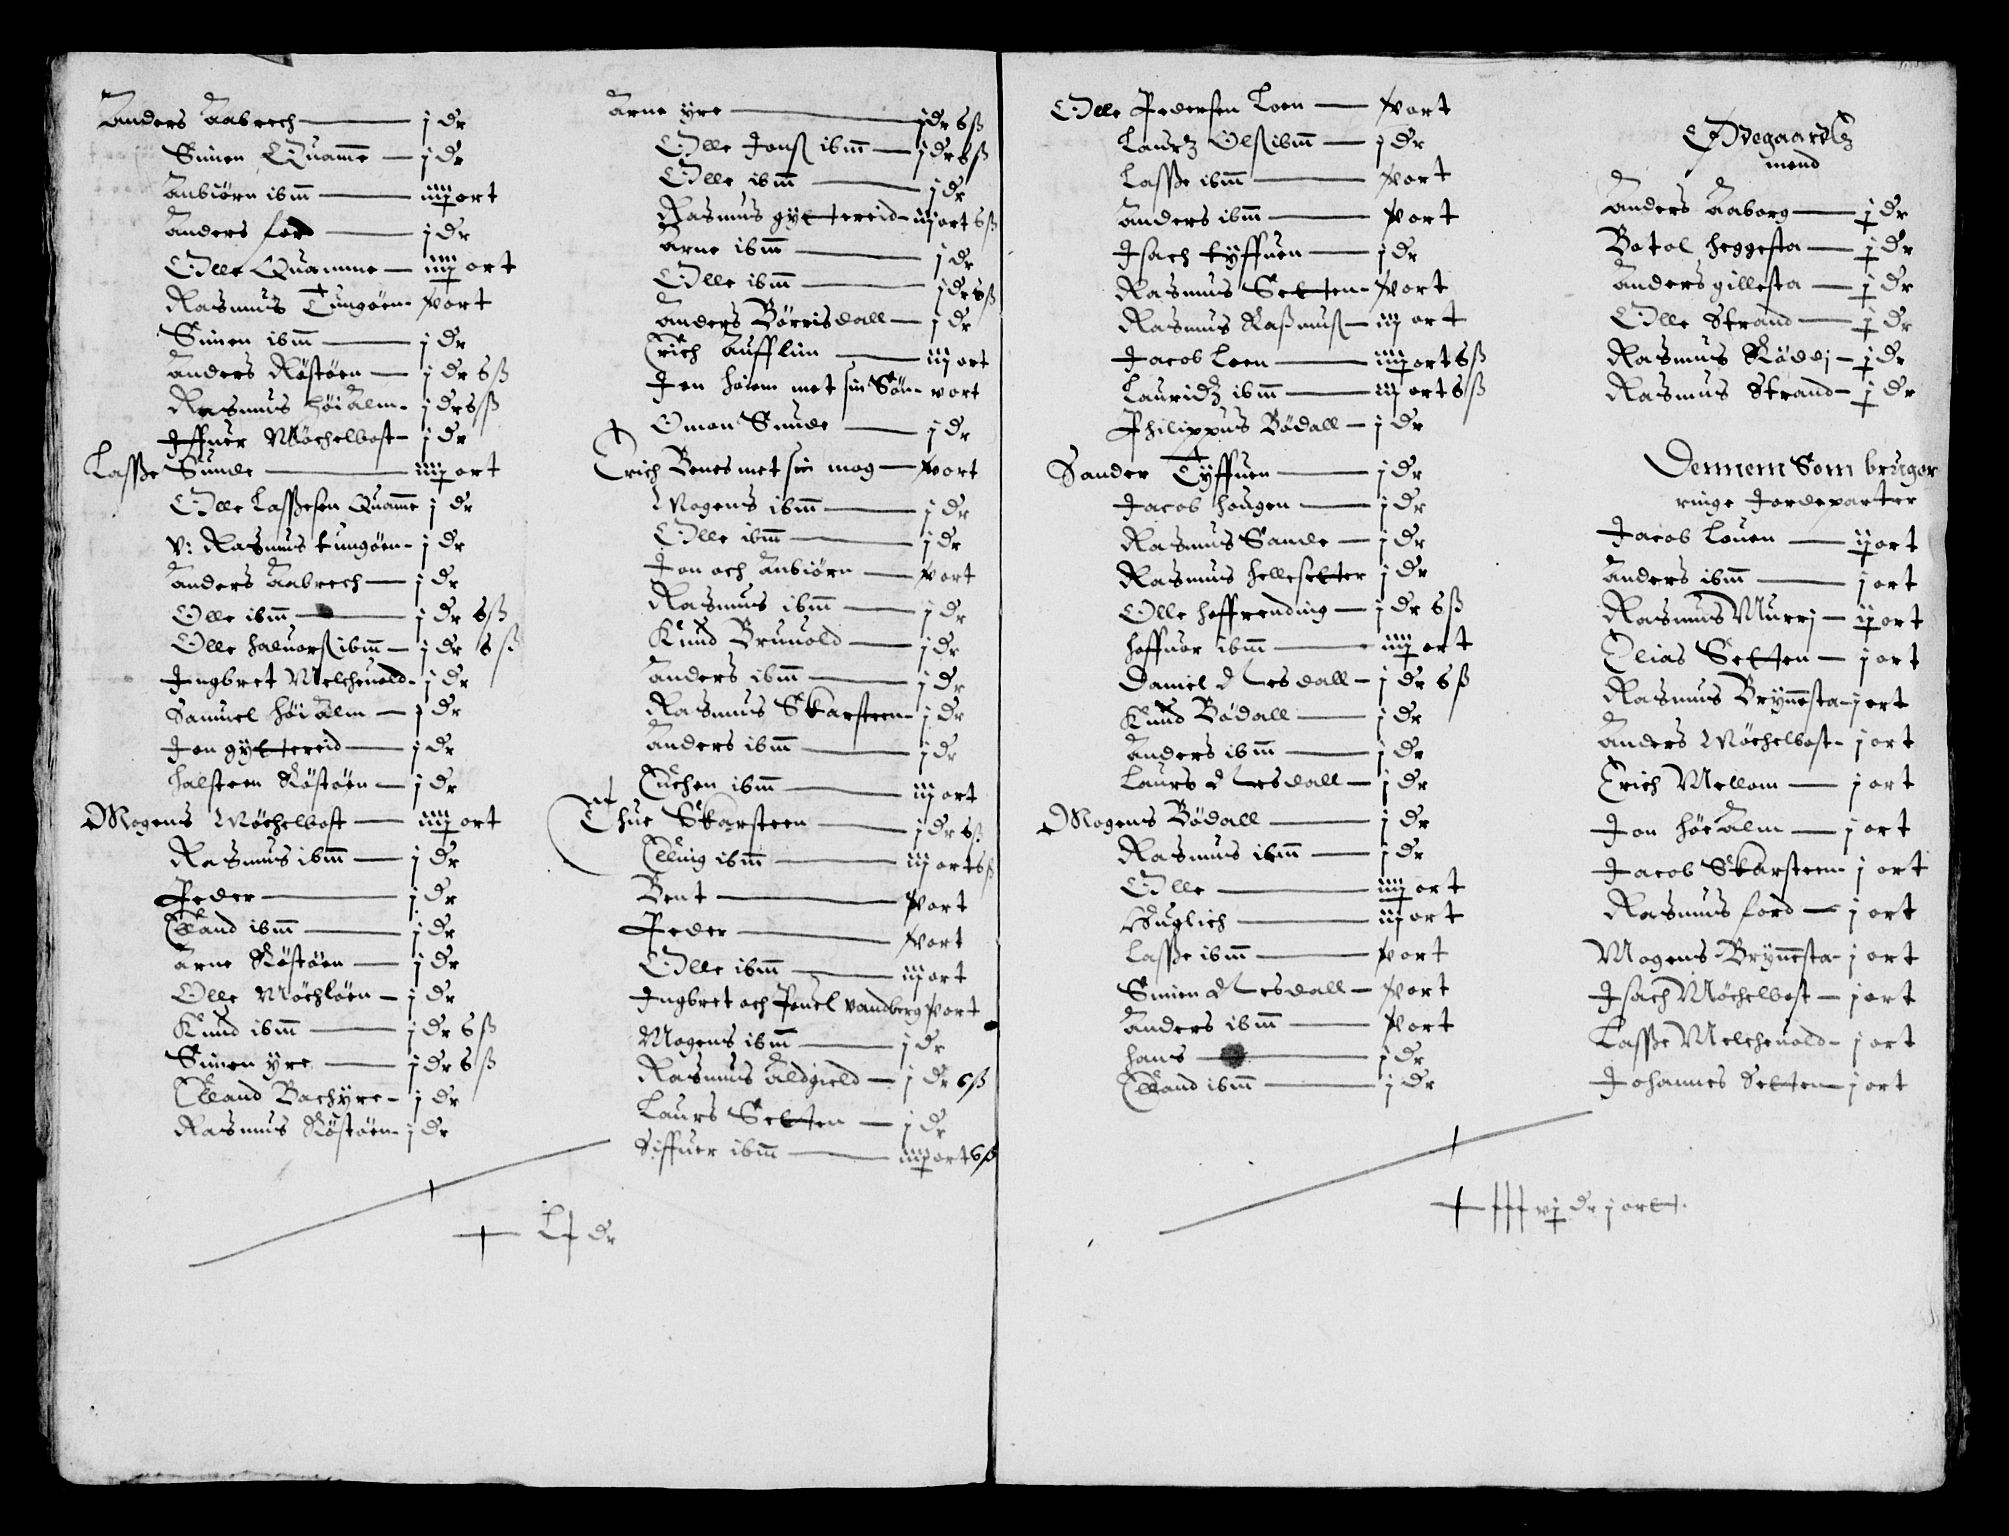 Anders Aabrech — j dr
Simen Quame — j dr
Anbiörn ibm — iiij ort
Anders ford — j dr
Olle Quamme — iiij ort
Rasmus Tungöen — v ort
Simen ibm — j dr
Anders Röstöen — j dr 6 ß
Rasmus höiAlm — j dr 6 ß
Iffuer Möchelbost — j dr
Lasße Sunde — iiij ort
Olle Lasßesen Quame j dr
V: Rasmus tungöen — j dr
Anders Aabrech — j dr
Olle ibm — j dr 6 ß
Olle haluorß ibm — j dr 6 ß
Ingbret Melcheuold — j dr
Samuel höiAlm — j dr
Jon gyttereid — j dr
halsteen Röstöen — j dr
Mogens Möchelbost — iiij ort
Rasmus ibm — j dr
Peder — j dr
Elland ibm — j dr
Arne Röstöen — j dr
Olle Möchlöen — j dr
Knud ibm — j dr 6 ß
Simen yre — j dr 6 ß
Elland Bachyre — j dr
Rasmus Röstöen — j dr
Arne yre — j dr 6 ß
Olle Jonß ibm — j dr 6 ß
Olle ibm — j dr
Rasmus gyttereid — iij ort 6 ß
Arne ibm — j dr
Olle ibm — j dr 6 ß
Anders Börrisdall — j dr
Erich Aufflim — iij ort
Jon hoiem met sin Sön — v ort
Omon Sunde — j dr
Erich Benes met sin mog — v ort
Mogens ibm — j dr
Olle ibm — j dr
Jon och Anbiörn — v ort
Rasmus ibm — j dr
Knud Bruuold — j dr
Anders ibm — j dr
Rasmus Skarsteen — j dr
Anders ibm — j dr
ibm — iij ort
Thue Skarsteen — j dr 6 ß
Elling ibm — iij ort 6 ß
Bent — v ort
Peder — v ort
Olle ibm — iij ort
Ingbret och Pouel vandberg v ort
Mogens ibm — j dr
Rasmus Aldgield — j dr 6 ß
Laurs Setten — j dr
Siffuer ibm — iiij ort 6 ß
dr
Olle Pedersen Loen — v ort
Lauritz Olß ibm — j dr
Lasße ibm — v ort
Anders ibm — v ort
Isach tyffuen — j dr
Rasmus Setten — v ort
Rasmus Raßmuß — iij ort
Jacob Loen — iiij ort 6 ß
Lauridz ibm — iij ort 6 ß
Philippus Bödall — j dr
Sander Tyffuen — j dr
Jacob hougen — j dr
Rasmus Sande — j dr
Rasmus hellesetter j dr
Olle hoffrending — j dr 6 ß
hoffuor ibm — iiij ort
Daniel dall — j dr 6 ß
Knud Bödall — j dr
Anders ibm — j dr
Laurs dall — j dr
Mogens Bödall — j dr
Rasmus ibm — j dr
Olle — iiij ort
Fuglich — iij ort
Lasße ibm — v ort
Simen dall — v ort
Anders ibm — v ort
hans — j dr
Elland ibm — j dr
Ødegaardtz
mend
Anders Aaborg — j dr
Botol heggesta — j dr
Anders gillesta — j dr
Olle Strand — j dr
Rasmus Röddj — j dr
Rasmus Strand — j dr
Dennem Som bruger
ringe Jordeparter
Jacob Louen — ij ort
Anders ibm — j ort
Rasmus Murrj — ij ort
Elias Setten — j ort
Rasmus Brynnesta — j ort
Anders Möchelbost — j ort
Erich Mellom — j ort
Jon höeAlm — j ort
Jacob Skarsteen — j ort
Rasmus ford — j ort
Mogens Brynnesta — j ort
Isach Möchelbost — j ort
Lasße Melcheuold — j ort
Johannes Setten — j ort
vj dr j ort